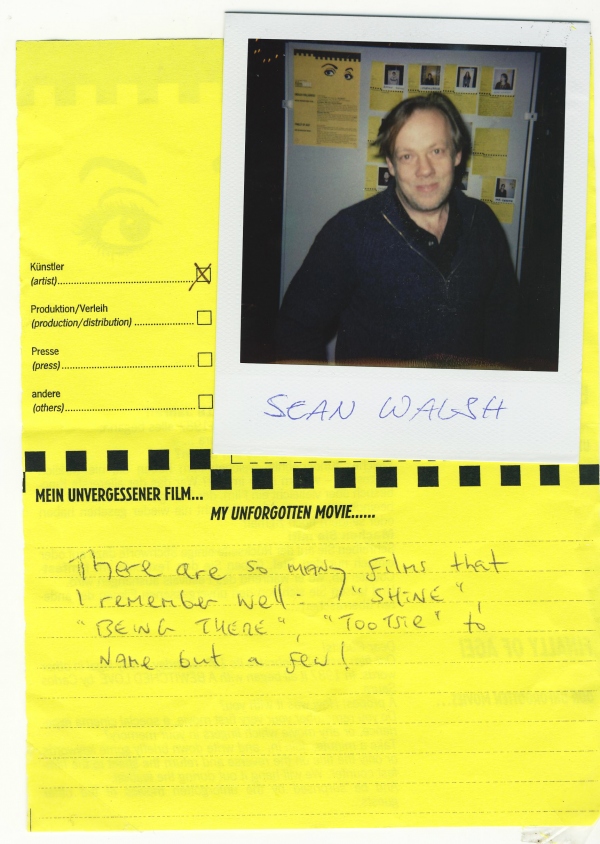 Künstler
(artist)
Produktion/Verleih
(production/distribution)
Presse
(press)
andere
(others)
SEAN WALSH
MEIN UNVERGESSENER FILM...
MY UNFORGOTTEN MOVIE......
There are so many films that
I remember well: "SHINE",
"BEING THERE", "TOOTSIE" to
name but a few!